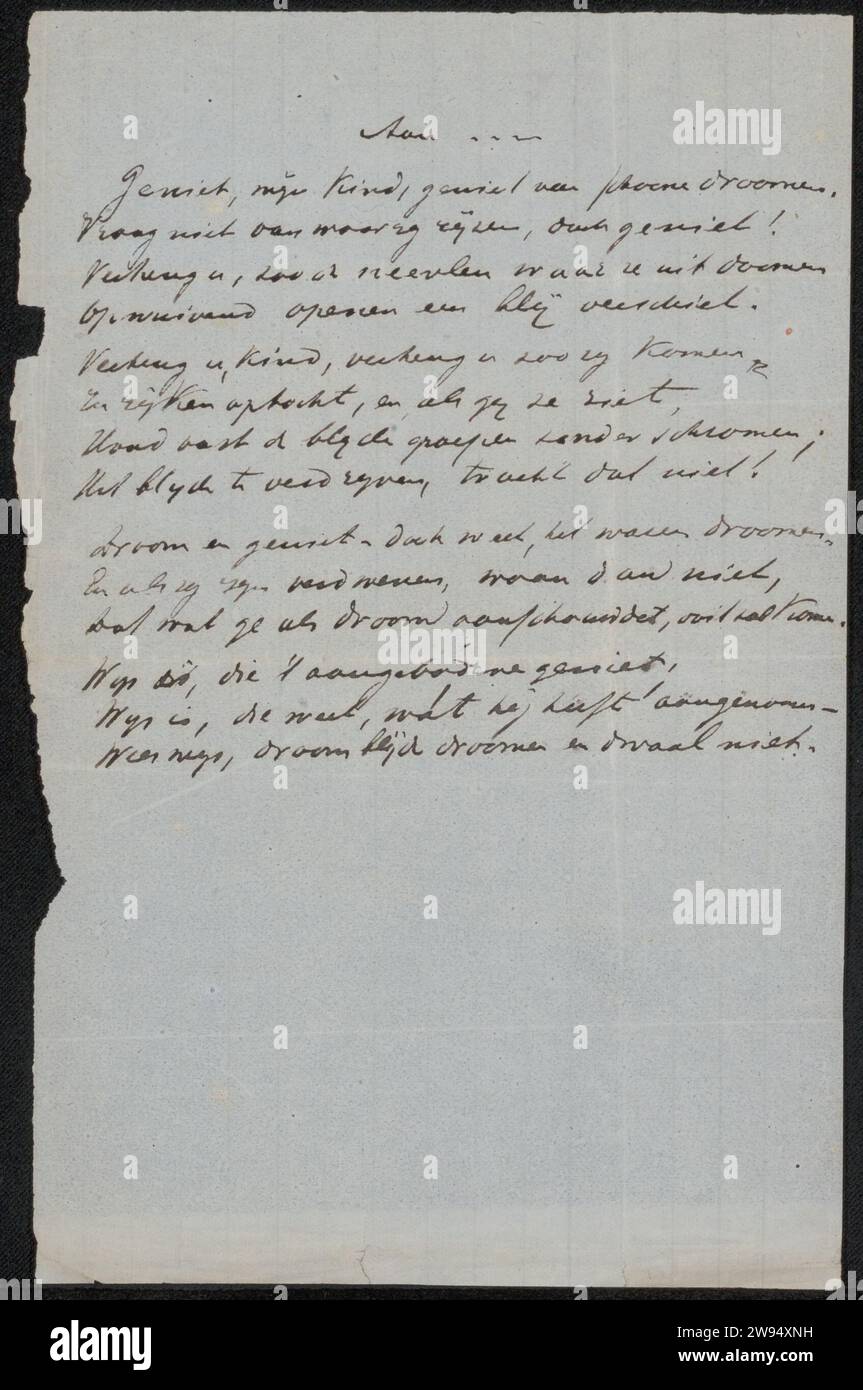 Aan ----
Geniet, mijn Kind, geniet van schoone droomen.
Vraag niet van waar zy rijzen, doch geniet!
Verheug u, zoo de neevlen waar ze uit doomen
Opwuivend openen een blij verschiet.
Verheug u, Kind, verheug u zoo zy Komen
In rijken optocht, en als gy ze ziet,
Houd vast de blyde groepen zonder schromen;
Het blyde te verdryven, tracht dat niet!
Droom en geniet - doch weet, het waren droomen.
En als zy zyn verdwenen, waan dan niet,
Dat wat ge als droom aanschouwdet, ooit zal Komen.
Wys is, die 't aangeboodne geniet,
Wys is, die weet, wát hij heeft aangenomen -
Wees wys, droom blijde droomen en dwaal niet.
alamy
alamy
Image ID: 2W94XNH
www.alamy.com